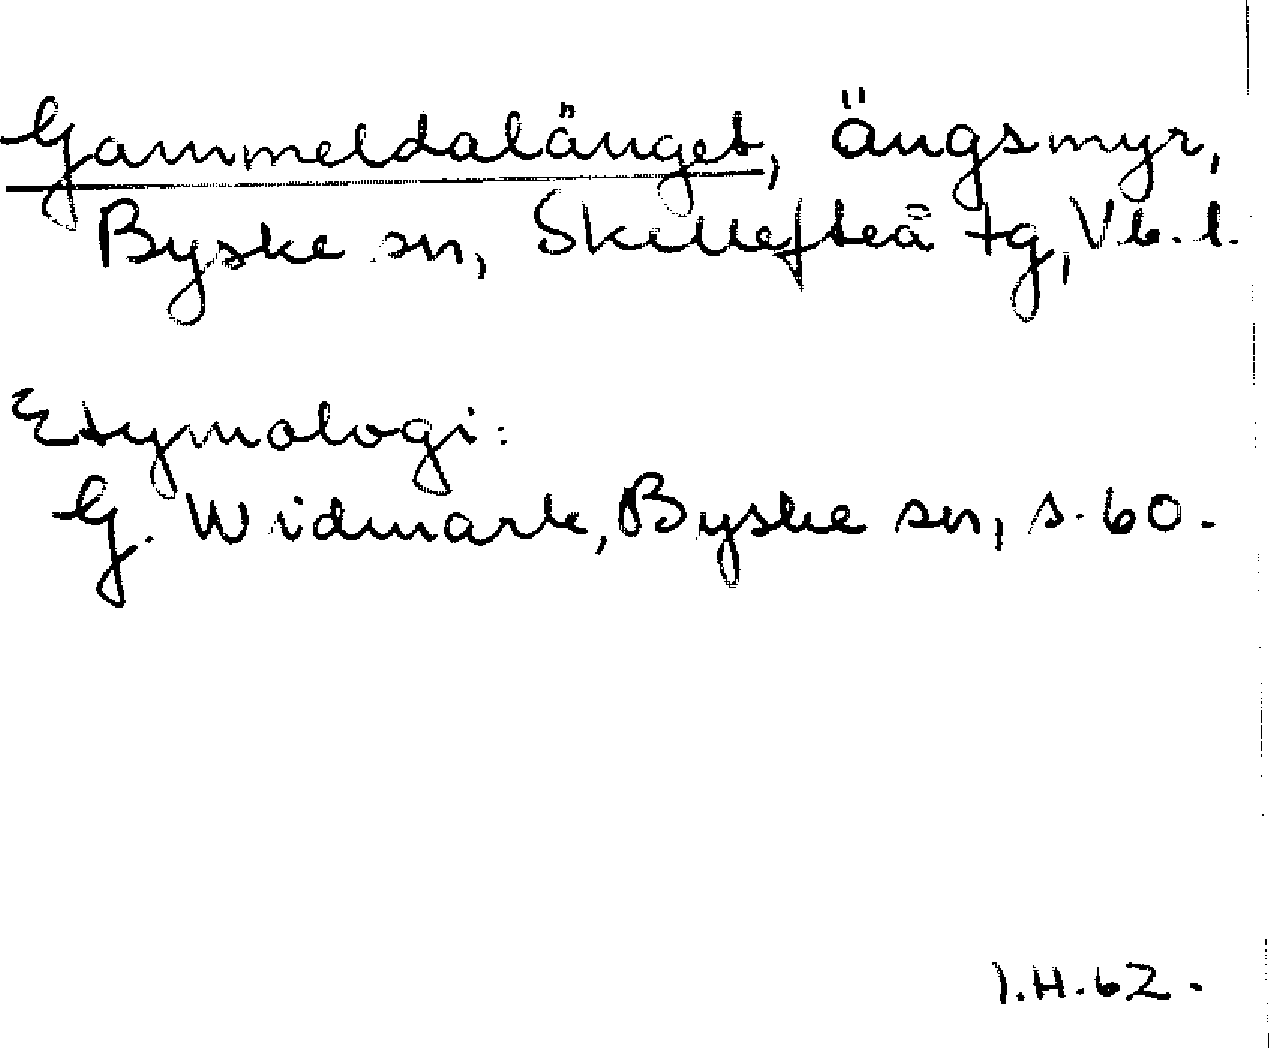 Gammeldalänget, ängsmyr,
Byske sn, Skellefteå tg, Vb. l.
Etymologi:
G. Widmark, Byske sn, s. 60.
I.H. 62.